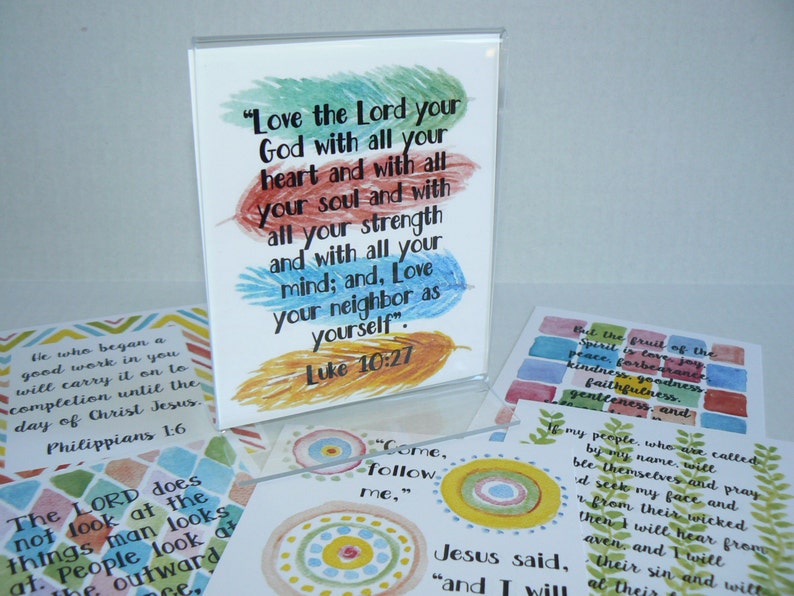 “Love the Lord your
God with all your
heart and with all
your soul and with
all your strength
and with all your
mind; and, Love
your neighbor as
yourself”.
Luke 10:27
He who began a
good work in you
will carry it on to
completion until the
day of Christ Jesus.
Philippians 1:6
But the fruit of the
Spirit is love, joy,
peace, forbearance,
kindness, goodness,
faithfulness,
gentleness, and
The LORD does
not look at the
things man looks
at. People look at
the outward
“Come,
follow
me,”
Jesus said,
“and I will
If my people, who are called
by my name, will
ble themselves and pray
d seek my face and
n from their wicked
then I will hear from
aven, and I will
their sin and will